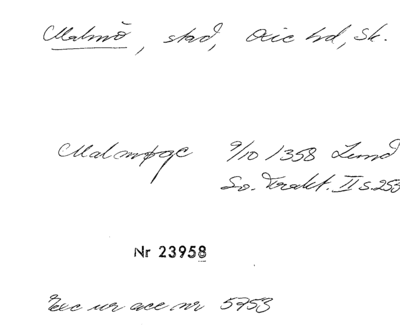 Malmö, stad, Oxie hd, Sk.
Malmøge 9/10 1358 Lund
Sv. Trakt. II s. 253
Nr 23958
Exc ur acc nr 5753